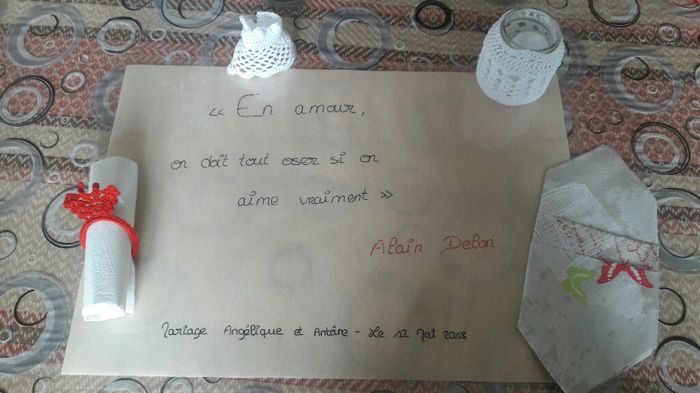 « En amour,
on doit tout oser si on
aime vraiment »
Alain Delon
Mariage Angélique et Antoine - Le 12 Mai 2018